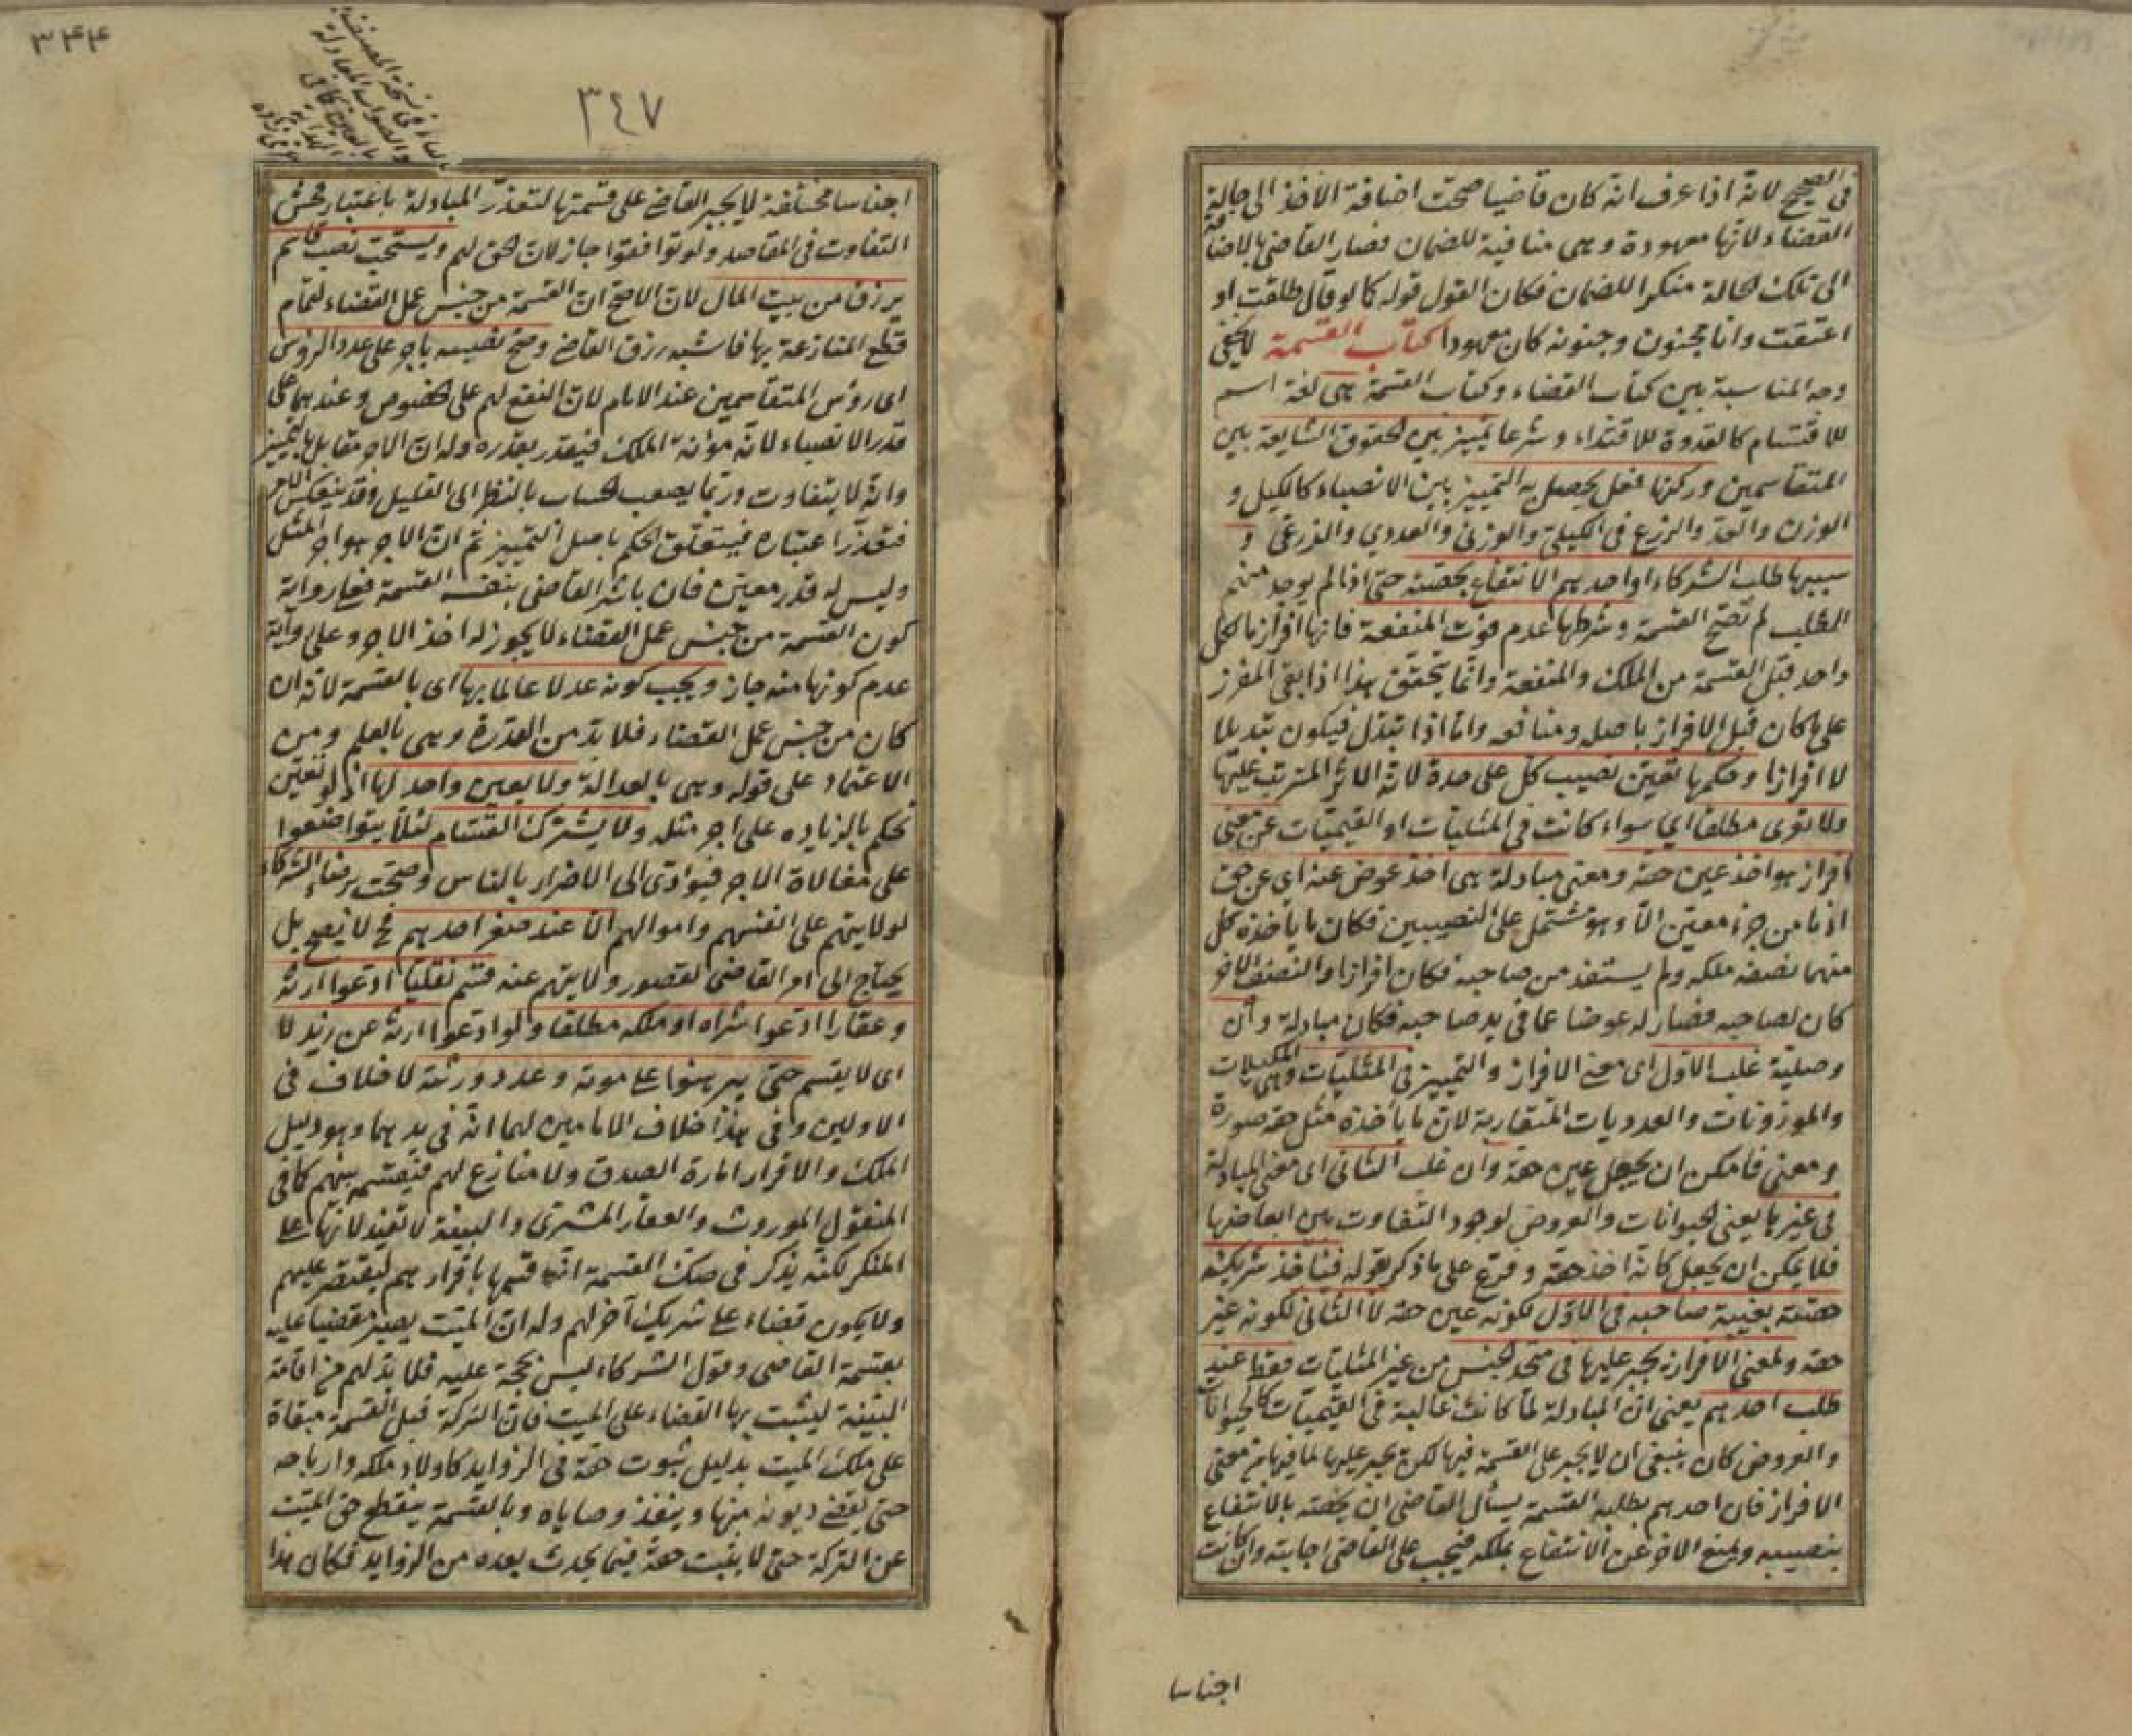 فى الصحيح لانه اذا عرف انه كان قاضيا صحت اضافة الاخذ الى حالة
القضاء لانها معهودة وهى منافية للضمان فصار القاضى بالاضافة
الى تلك الحالة منكرا للضمان فكان القول قوله كما لو قال طلقت او
اعتقت وانا مجنون وجنونه كان معهودا كتاب القسمة لا يخفى
وجه المناسبة بين كتاب القضاء وكتاب القسمة هى لغة اسم
للاقتسام كالقدوة للاقتداء وشرعا تمييز بين الحقوق الشايعة بين
المتقاسمين وركنها فعل يحصل به التمييز بين الانصباء كالكيل و
الوزن والعد والذرع فى الكيلى والوزنى والعددى والذرعى و
سببها طلب الشركاء او احدهم الانتفاع بحصته حتى اذا لم يوجد منهم
الطلب لم تصح القسمة وشرطها عدم فوت المنفعة فانها افراز ما لكل
واحد قبل القسمة من الملك والمنفعة وانما يتحقق هذا اذا بقى المفرز
على ما كان قبل الافراز باصله ومنافعه واما اذا تبدل فيكون تبديلا
لا افرازا وحكمها تعيين نصيب كل على حدة لانه الاثر المترتب عليها
ولا تعرى مطلقا اى سواء كانت فى المثليات او القيميات عن معنى
افراز هو اخذ عين حقه ومعنى مبادلة هى اخذ عوض عنه اى عن حقه
اذ ما من جزء معين الا وهو مشتمل على النصيبين فكان ما ياخذه كل
منهما نصفه ملكه ولم يستفد من صاحبه فكان افرازا والنصف الاخر
كان لصاحبه فصار له عوضا عما فى يد صاحبه فكان مبادلة وان
وصلية غلب الاول اى معنى الافراز والتمييز فى المثليات وهى المكيلات
والموزونات والعدديات المتقاربة لان ما ياخذه مثل حقه صورة
ومعنى فامكن ان يجعل عين حقه وان غلب الثانى اى معنى المبادلة
فى غيرها يعنى الحيوانات والعروض لوجود التفاوت بين ابعاضها
فلا يمكن ان يجعل كانه اخذ حقه وفرع على ما ذكر بقوله فياخذ شريكه
حصته بغيبة صاحبه فى الاول لكونه عين حقه لا الثانى لكونه غير
حقه ولمعنى الافراز يجبر عليها فى متحد الجنس من غير المثليات فقط عند
طلب احدهم يعنى ان المبادلة لما كانت غالبة فى القيميات كالحيوانات
والعروض كان ينبغى ان لا يجبر على القسمة فيها لكن يجبر عليها لما فيها من معنى
الافراز فان احدهم بطلبه القسمة يسأل القاضى ان يخصه بالانتفاع
بنصيبه ويمنع الاخر عن الانتفاع بملكه فيجب على القاضى اجابته وان كانت
اجناسا
٣٤٤
٣٤٧
اجناسا مختلفة لا يجبر القاضى على قسمتها لتعذر المبادلة باعتبار فحش
التفاوت فى المقاصد ولو توافقوا جاز لان الحق لهم ويستحب نصب قاسم
يرزق من بيت المال لان الاصح ان القسمة من جنس عمل القضاء لتمام
قطع المنازعة بها فاشبه رزق القاضى وصح نصبه باجر على عدد الرؤس
اى رؤس المتقاسمين عند الامام لان النفع لهم على الخصوص وعندهما على
قدر الانصباء لانه مؤنة الملك فيقدر بقدره وله ان الاجر مقابل بالتمييز
وانه لا يتفاوت وربما يصعب الحساب بالنظر الى القليل وقد ينعكس الامر
فتعذر اعتباره فيتعلق الحكم باصل التمييز ثم ان الاجر هو اجر المثل
وليس له قدر معين فان باشر القاضى بنفسه القسمة فعلى رواية
كون القسمة من جنس عمل القضاء لا يجوز له اخذ الاجر وعلى رواية
عدم كونها منه جاز ويجب كونه عدلا عالما بها اى بالقسمة لانه ان
كان من جنس عمل القضاء فلا بد من القدرة وهى بالعلم ومن
الاعتماد على قوله وهى بالعدالة ولا يعين واحد لها اذ لو تعين
تحكم بالزيادة على اجر مثله ولا يشترك القسام لئلا يتواضعوا
على مغالاة الاجر فيؤدى الى الاضرار بالناس وصحت برضاء الشركاء
لولايتهم على انفسهم واموالهم الا عند صغر احدهم فح لا يصح بل
يحتاج الى امر القاضى لقصور ولايتهم عنه قسم نقليا ادعوا ارثه
وعقارا ادعوا شراه او ملكه مطلقا ولو ادعوا ارثه عن زيد لا
اى لا يقسم حتى يبرهنوا على موته وعدد ورثته لا خلاف فى
الاولين وفى هذا خلاف الامامين لهما انه فى يدهما وهو دليل
الملك والاقرار امارة الصدق ولا منازع لهم فيقسمه بينهم كما فى
المنقول الموروث والعقار المشترى والبينة لا تفيد لانها على
المنكر لكنه يذكر فى صك القسمة انه قسمها باقرارهم ليقتصر عليهم
ولا يكون قضاء على شريك آخر لهم وله ان الميت يصير مقضيا عليه
بقسمة القاضى وقول الشركاء ليس بحجة عليه فلا بد لهم من اقامة
البينة ليثبت بها القضاء على الميت فان التركة قبل القسمة مبقاة
على ملك الميت بدليل ثبوت حقه فى الزوايد كاولاد ملكه وارباحه
حتى يقضى ديونه منها وينفذ وصاياه وبالقسمة ينقطع حق الميت
عن التركة حتى لا يثبت حقه فيما يحدث بعده من الزوايد فكان هذا